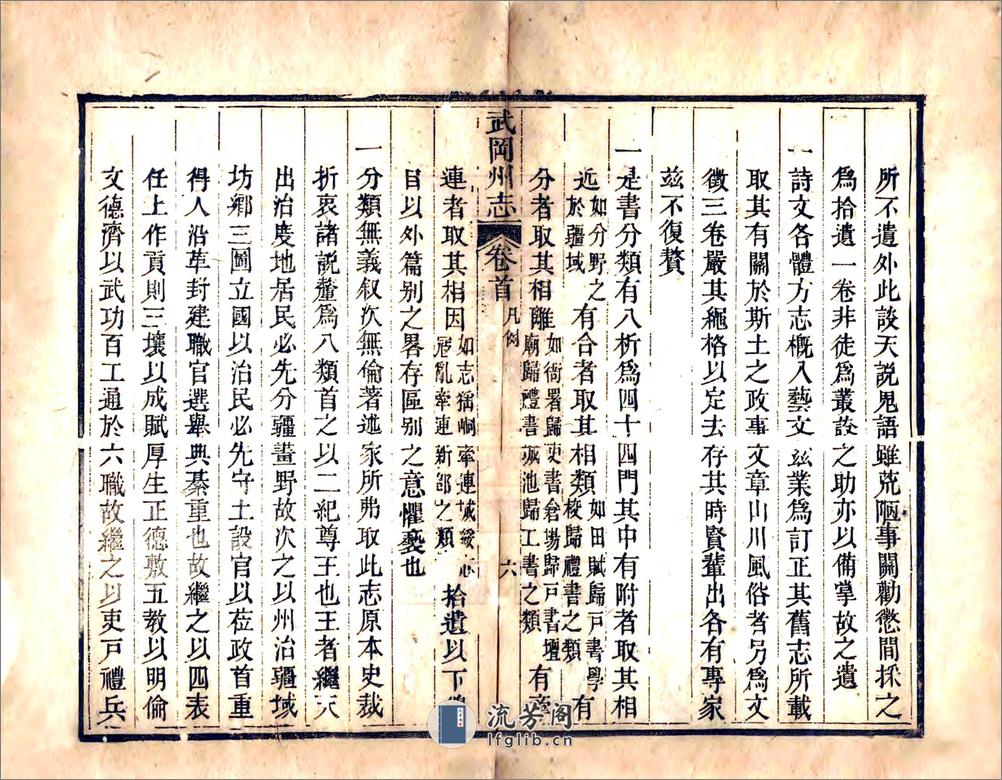 所不遺外此談天說鬼語雖荒陋事關勸懲間採之
為拾遺一卷非徒為叢談之助亦以備掌故之遺
一詩文各體方志概入藝文茲業為訂正其舊志所載
取其有關於斯土之政事文章山川風俗者另為文
徵三卷嚴其繩格以定去存其時賢輩出各有專家
茲不復贅
一是書分類有八析為四十四門其中有附者取其相
近如分野之於疆域有合者取其相類如田賦歸戶書學校歸禮書之類有
分者取其相離如衙署歸吏書倉場歸戶書壇廟歸禮書城池歸工書之類有
武岡州志 卷首 凡例 六
連者取其相因如志猺峒牽連城綏志寇亂牽連新部之類拾遺以下
目以外篇別之畧存區别之意懼褻也
一分類無義叙次無倫著述家所弗取此志原本史裁
折衷諸說釐為八類首之以二紀尊王也王者繼天
出治慶地居民必先分疆畫野故次之以州治疆域
坊鄉三圖立國以治民必先守土設官以莅政首重
得人沿革封建職官選舉典綦重也故繼之以四表
任土作貢則三壤以成賦厚生正德敷五教以明倫
文德濟以武功百工通於六職故繼之以吏戶禮兵
流芳阁
lfglib.cn